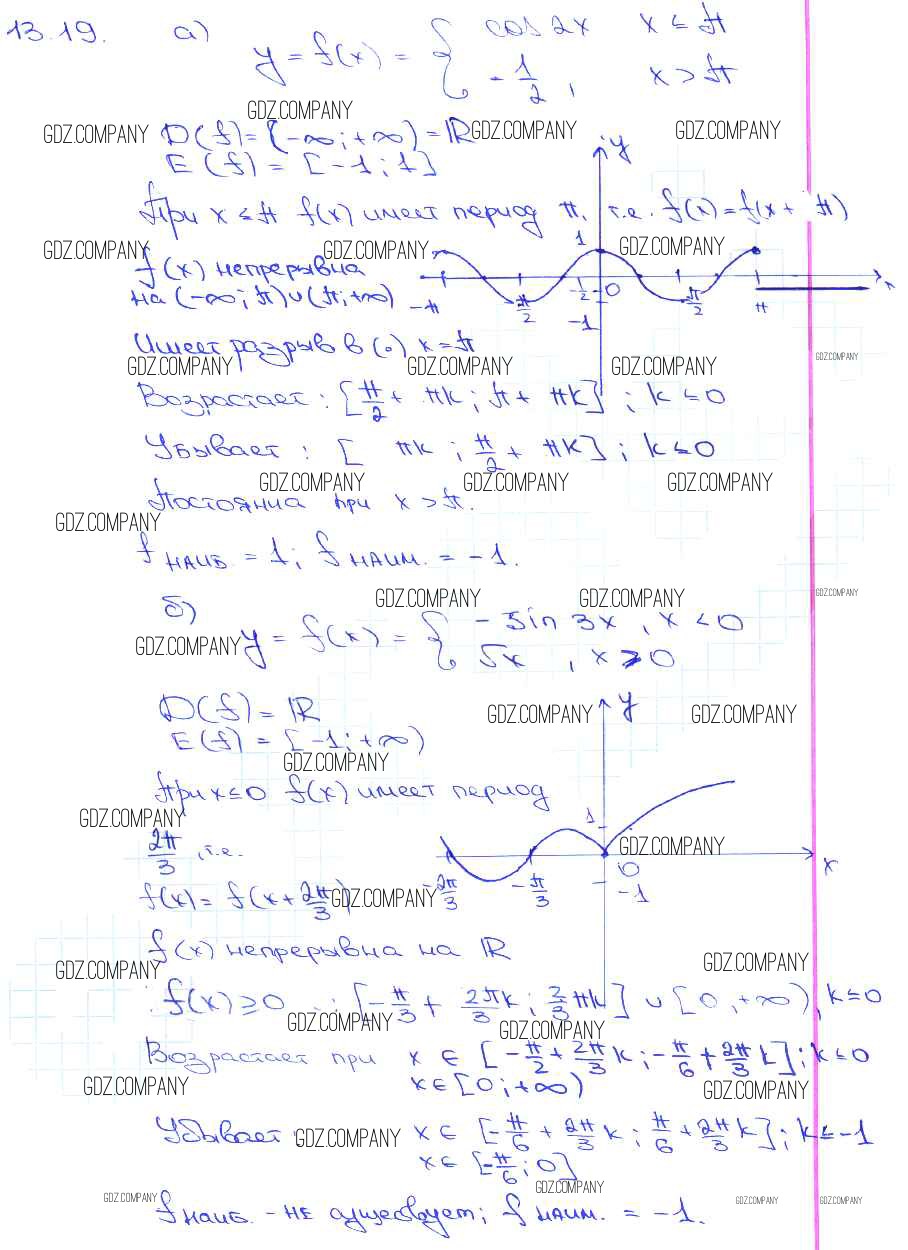 13.19. а) y = f(x) = { cos 2x   x ≤ π
- 1/2 ,   x > π
GDZ.COMPANY
GDZ.COMPANY D(f) = (-∞; +∞) = ℝ GDZ.COMPANY GDZ.COMPANY
E(f) = [-1; 1]
y
При x ≤ π f(x) имеет период π, т.е. f(x) = f(x + π)
1
GDZ.COMPANY GDZ.COMPANY GDZ.COMPANY
f(x) непрерывна
x
на (-∞; π) ∪ (π; +∞)
-π π/2 -1/2 0 π/2 π
-1
Имеет разрыв в (·) x = π
GDZ.COMPANY GDZ.COMPANY GDZ.COMPANY GDZ.COMPANY
Возрастает: [π/2 + πk; π + πk]; k ≤ 0
Убывает: [ πk; π/2 + πk]; k ≤ 0
GDZ.COMPANY GDZ.COMPANY GDZ.COMPANY
Постоянна при x > π.
GDZ.COMPANY
f наиб. = 1; f наим. = -1.
GDZ.COMPANY GDZ.COMPANY GDZ.COMPANY
б) y = f(x) = { - sin 3x, x < 0
GDZ.COMPANY
√x , x ≥ 0
D(f) = ℝ
y
GDZ.COMPANY GDZ.COMPANY
E(f) = [-1; +∞)
GDZ.COMPANY
При x ≤ 0 f(x) имеет период
GDZ.COMPANY
1
2π/3, т.е.
GDZ.COMPANY
x
0
f(x) = f(x + 2π/3)
GDZ.COMPANY
-2π/3 -π/3 -1
f(x) непрерывна на ℝ
GDZ.COMPANY GDZ.COMPANY
f(x) ≥ 0 : [-π/3 + 2πk/3; 2/3 πk] ∪ [0, +∞), k ≤ 0
GDZ.COMPANY GDZ.COMPANY
Возрастает при x ∈ [-π/2 + 2π/3 k; -π/6 + 2π/3 k]; k ≤ 0
GDZ.COMPANY x ∈ [0; +∞) GDZ.COMPANY
Убывает GDZ.COMPANY x ∈ [-π/6 + 2π/3 k; π/6 + 2π/3 k]; k ≤ -1
x ∈ [-π/6; 0]
GDZ.COMPANY
GDZ.COMPANY GDZ.COMPANY GDZ.COMPANY
f наиб. - не существует; f наим. = -1.